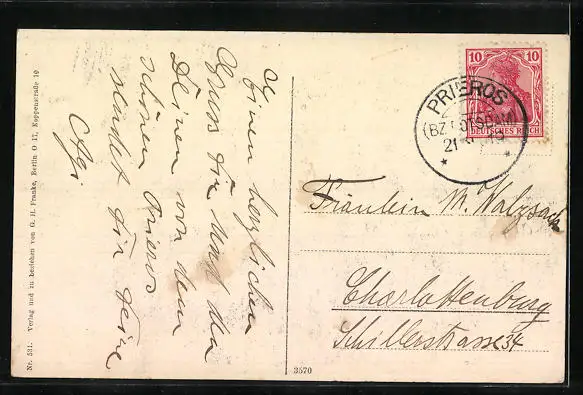 Einen herzlichen
Gruss Dir und den
Deinen von dem
schönen Prieros
sendet Dir Deine
Nr. 531. Verlag und zu beziehen von G. H. Franke, Berlin O 17, Koppenstraße 10
3570
10 10
DEUTSCHES REICH
PRIEROS
(BZ. POTSDAM)
21
Fräulein M. Walzsack
Charlottenburg
Schillerstrasse 34